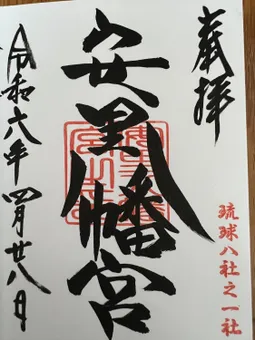 奉拝
琉球八社之一社
安里八幡宮
令和六年四月廿八日